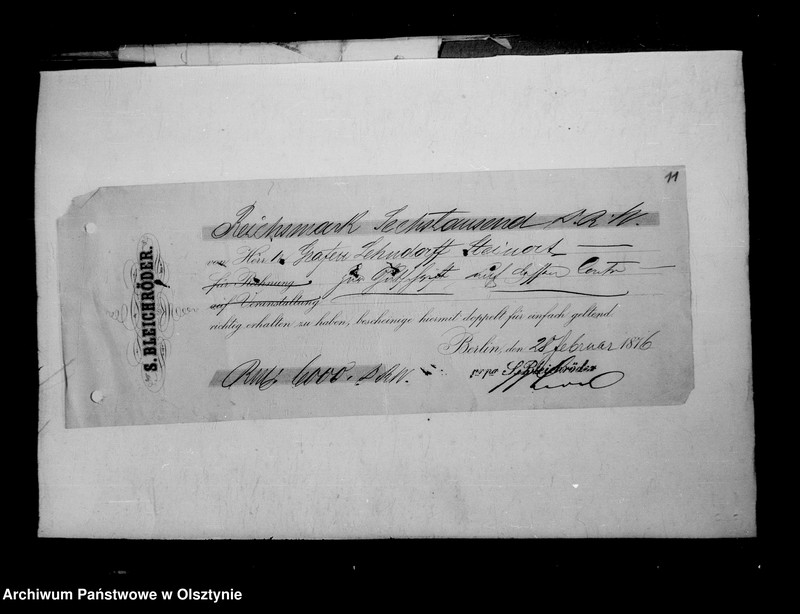 11
S. BLEICHRÖDER.
Reichsmark Sechstausend D.R.W.
von Herrn Grafen Lehndorff Steinort
für Rechnung zur Gutschrift auf dessen Conto
auf Veranstaltung
richtig erhalten zu haben, bescheinige hiermit doppelt für einfach geltend.
Berlin, den 28 februar 1876
Rmk 6000. D.R.W.
pepa S. Bleichröder
Archiwum Państwowe w Olsztynie